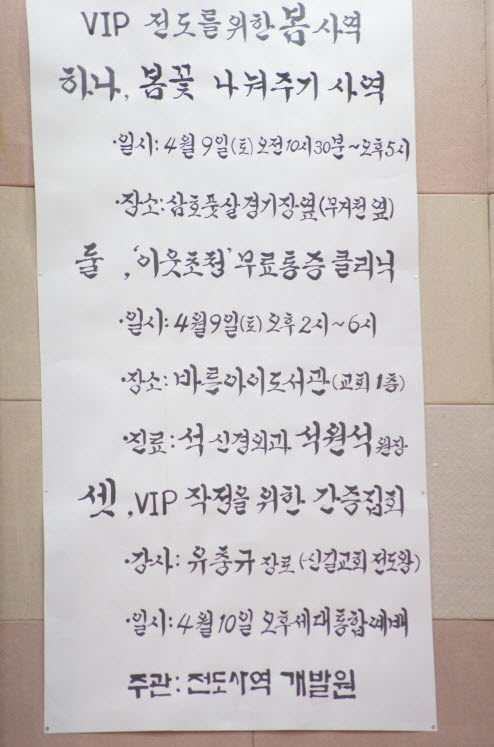 VIP 전도를 위한 봄 사역
하나, 봄꽃 나눠주기 사역
·일시: 4월 9일(토) 오전10시30분~오후5시
·장소: 삼호풋살경기장옆(무거천 옆)
둘, '이웃초청' 무료통증 클리닉
·일시: 4월9일(토) 오후 2시~6시
·장소: 바른아이도서관 (교회 1층)
·진료: 석 신경외과 석원석 원장
셋, VIP 작정을 위한 간증집회
·강사: 유충규 장로 (신길교회 전도왕)
·일시: 4월 10일 오후세대통합예배
주관: 전도사역 개발원